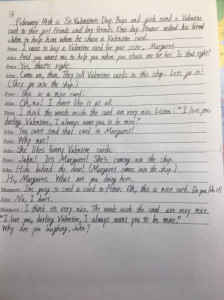 February 14th is St. Valentine's Day. Boys and girls send a Valentine
card to their girl friends and boy friends. One day Peter asked his friend
John to help him when he chose a Valentine card.
Peter: I want to buy a Valentine card for your sister, Margaret.
John: And you want me to help you when you choose one for her. Is that right?
Peter: Yes, that's right.
John: Come on, then. They sell Valentine cards in this shop. Let's go in!
(They go into the shop)
Peter: This is a nice card.
John: Oh, no! I don't like it at all.
Peter: I think the words inside the card are very nice. Listen! "I love you,
darling Valentine, I always want you to be mine."
John: You can't send that card to Margaret!
Peter: Why not?
John: She likes funny Valentine cards.
Peter: John! It's Margaret! She's coming into the shop.
John: Hide behind the door! (Margaret comes into the shop)
Hi, Margaret. What are you doing here.
Margaret: I'm going to send a card to Peter. Oh, this is a nice card. Do you like it?
John: No, I don't.
Margaret: I think it's very nice. The words inside the card are very nice.
"I love you, darling Valentine, I always want you to be mine."
Why are you laughing, John?